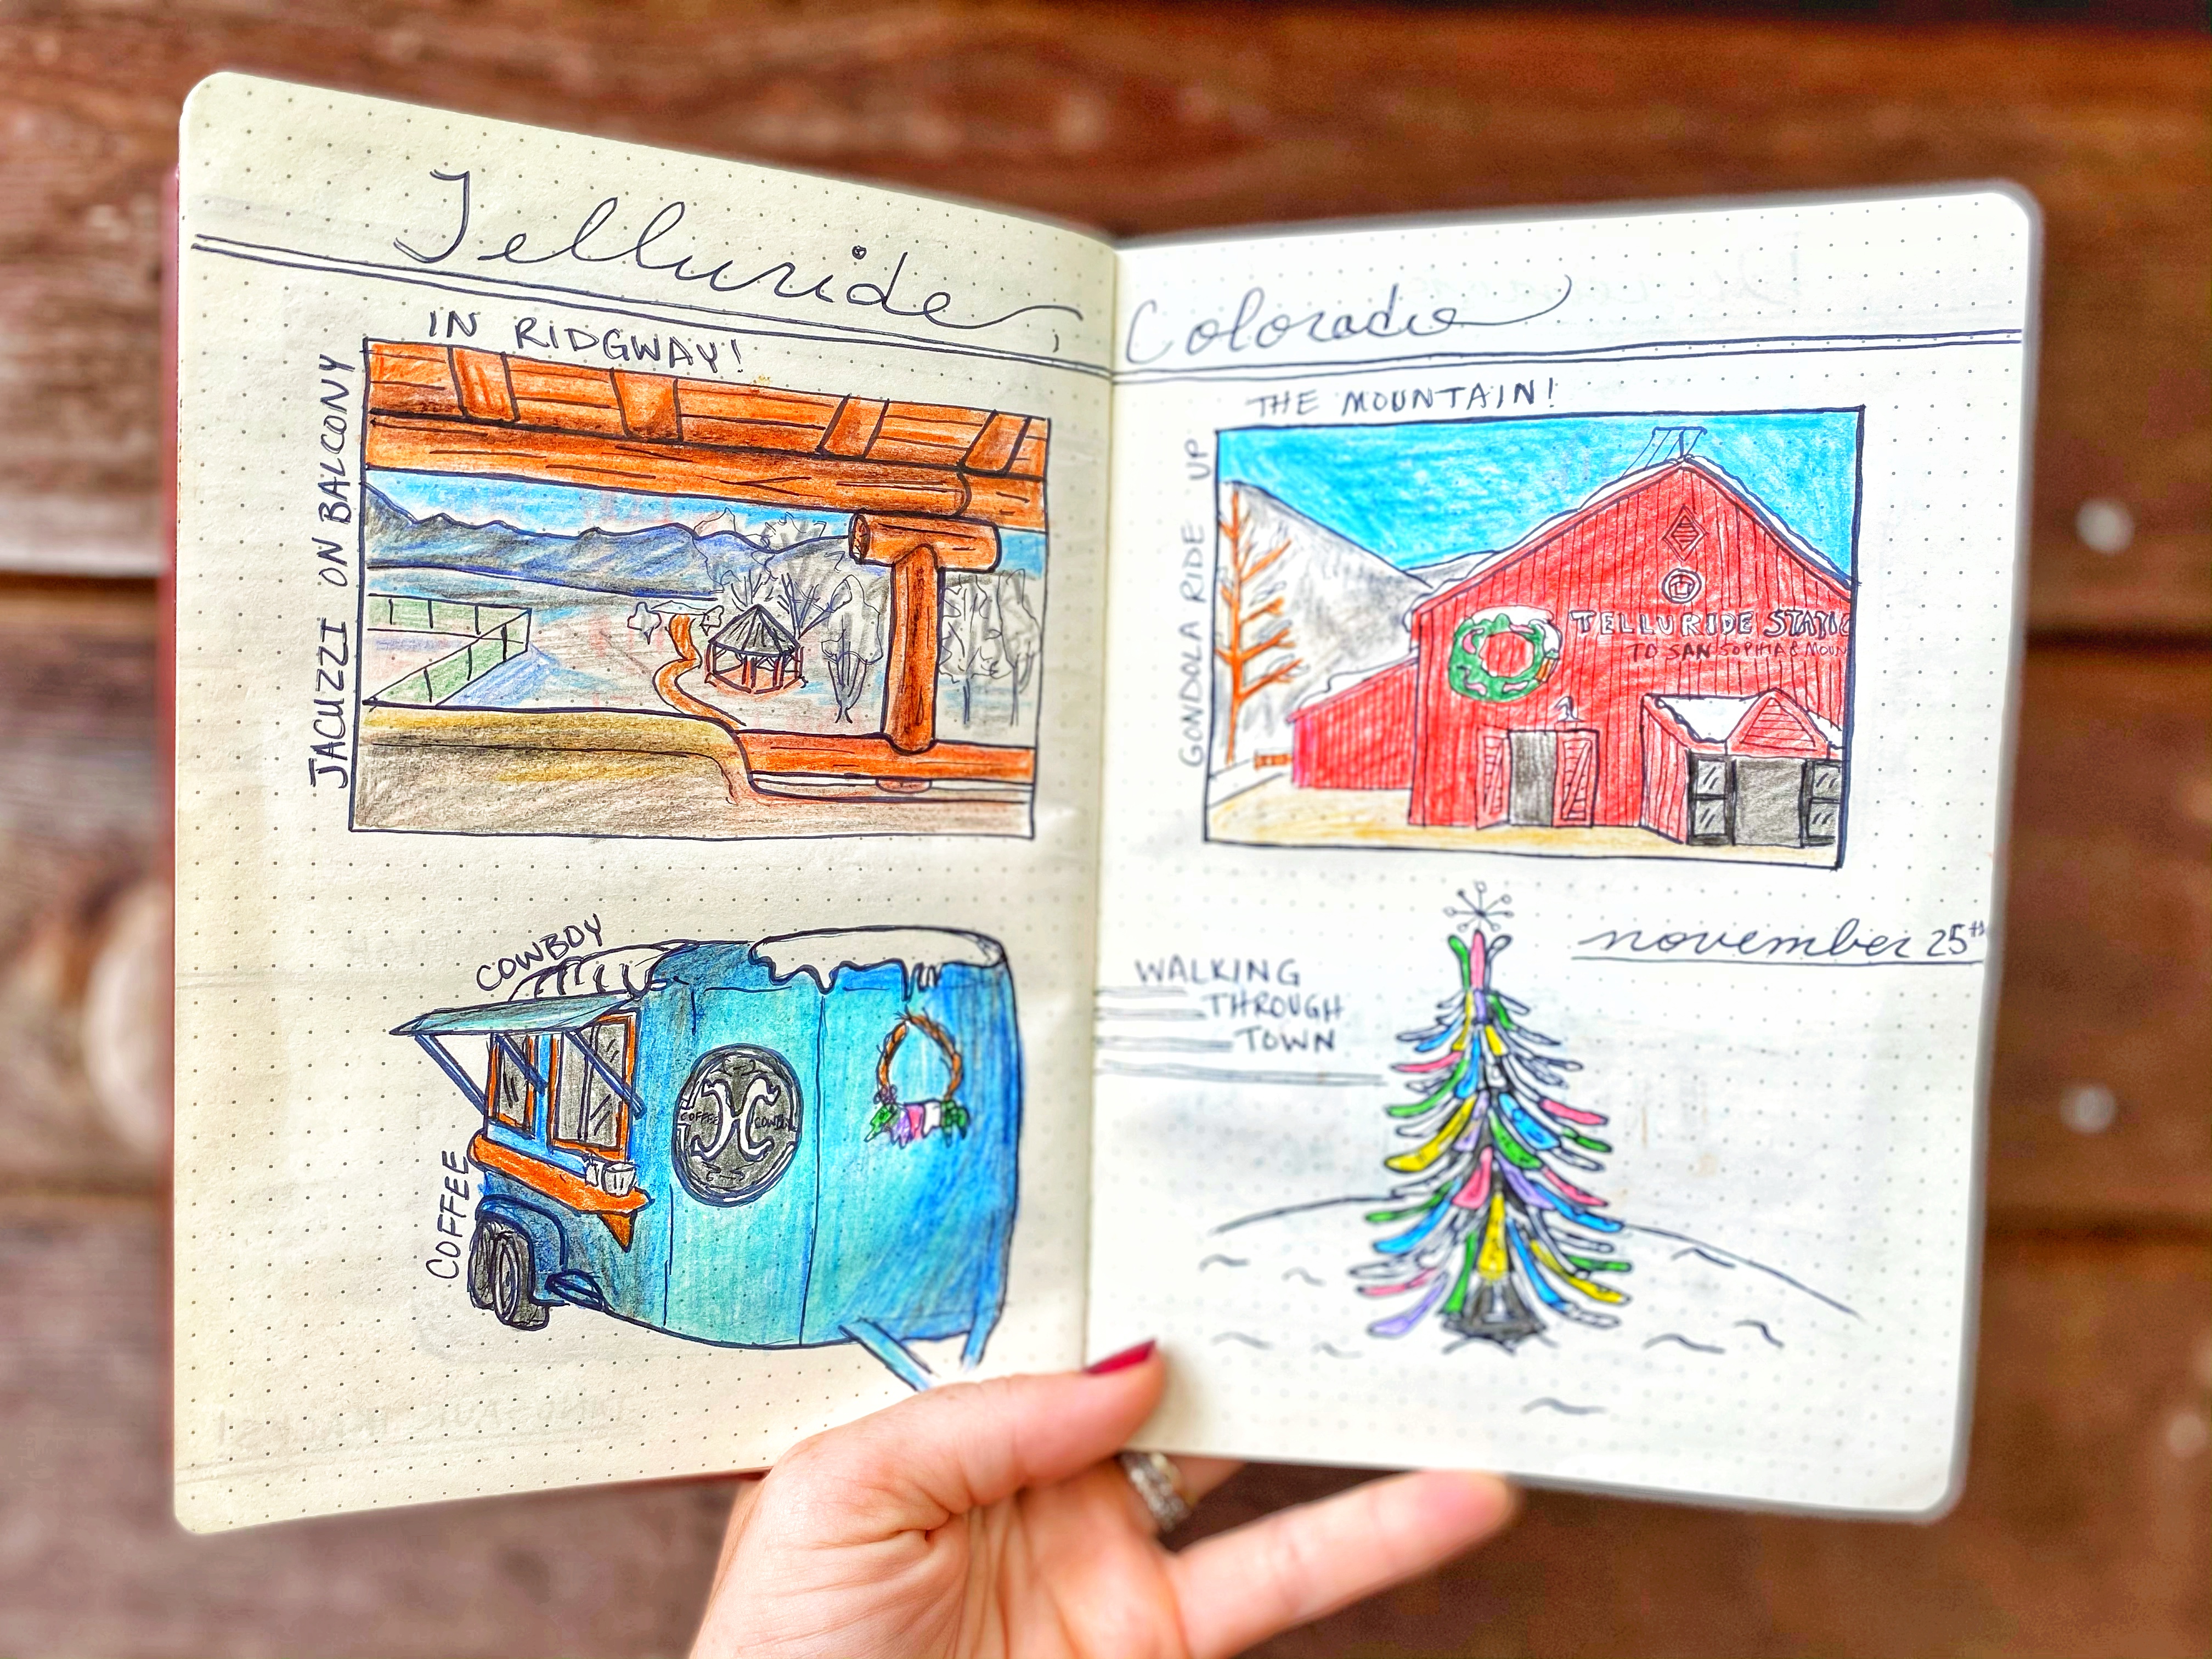 Telluride,
Colorado
JACUZZI ON BALCONY
IN RIDGWAY!
GONDOLA RIDE UP
THE MOUNTAIN!
TELLURIDE STATIO
TO SAN SOPHIA & MOUN
COFFEE
COWBOY
COFFEE COWBOY
WALKING
THROUGH
TOWN
november 25th